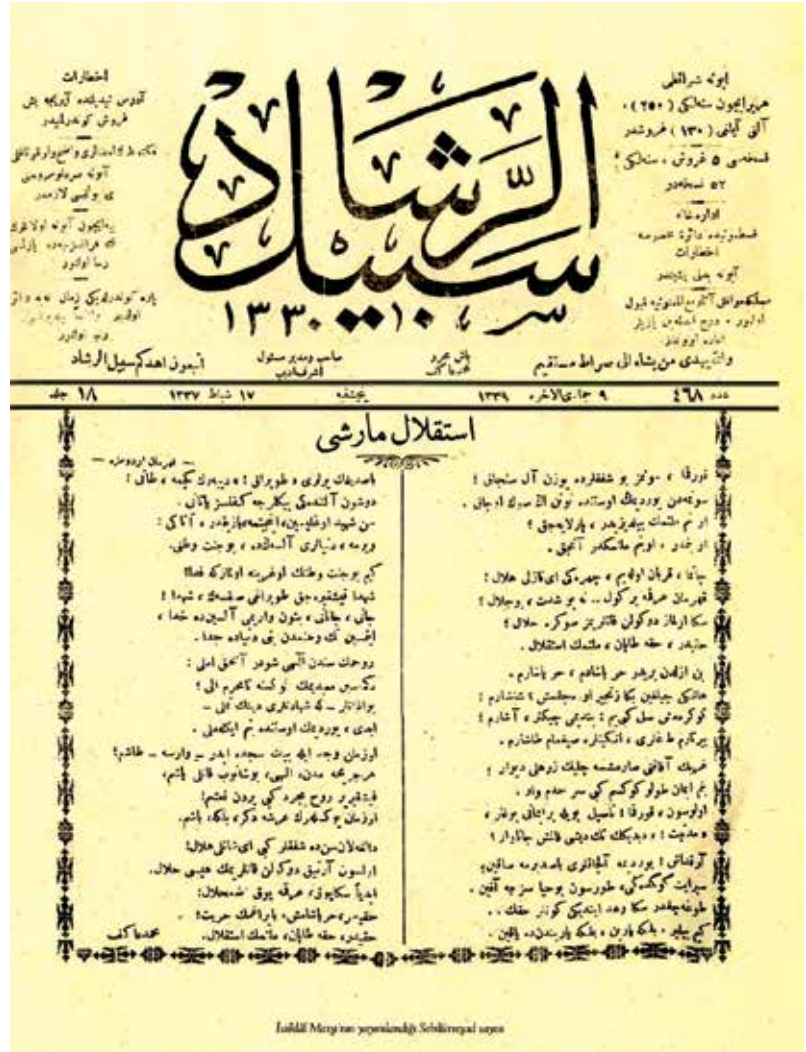 آبونه شرائطی
هر یر ایچون سنه‌لکی (٢٥٠)،
آلتی آیلغی (١٣٠) غروشدر
نسخه‌سی ٥ غروش، سنه‌لکی
٥٢ نسخه‌در
اداره‌خانه
قسطمونیده دائرۀ مخصوصه
اخطارات
آبونه بدلی پشیندر
سبیل الرشاد
١٣٣٠
اخطارات
آدرس تبدیلنده آیریجه بش
غروش کوندرلیدر
والله یهدی من یشاء الی صراط مستقیم
باش محرر
محمد عاکف
صاحب و مدیر مسئول
اشرف ادیب
اتبعون اهدکم سبیل الرشاد
عدد ٤٦٨
٩ جمادی‌الآخره ١٣٣٩
پنجشنبه
١٧ شباط ١٣٣٧
جلد ١٨
استقلال مارشی
— قهرمان اردومزه —
قورقما، سونمز بو شفقلرده یوزن آل سنجاق؛
سونمه‌دن یوردیمک اوستنده توتن اڭ صوڭ اوجاق.
او بنم ملتمک ییلدیزیدر، پارلایه‌جق؛
او بنمدر، او بنم ملتمکدر آنجق.
چاتما، قربان اولەیم، چهره‌کی ای نازلی هلال!
قهرمان عرقمه بر کول.. نه بو شدت، بو جلال؟
سکا اولماز دوکولن قانلریمز صوکره حلال؛
حقیدر، حقه طاپان، ملتمک استقلال.
بن ازلدن بریدر حر یاشادم، حر یاشارم.
هانکی چیلغین بکا زنجیر اوره‌جقمش؟ شاشارم!
کوکره‌مش سیل کبی‌یم؛ بندیمی چیکنر، آشارم؛
ییرتارم طاغلری، انکینلره صیغمام طاشارم.
غربک آفاقنی صارمشسه چلیک زرهلی دیوار؛
بنم ایمان طولو کوکسم کبی سرحدم وار.
اولوسون، قورقما! ناصیل بویله بر ایمانی بوغار،
«مدنیت!» دیدیکک تک دیشی قالمش جاناوار؟
آرقداش! یوردیمه آلچاقلری اوغراتمه صاقین؛
سپر ایت کوکده‌کی، طورسون بو حیاسزجه آقین.
طوغه‌جقدر سکا وعد ایتدیکی کونلر حقک..
کیم بیلیر، بلکه یارین، بلکه یاریندن ده یاقین.
باصدیغک یرلری «طوپراق!» دییه‌رک کچمه، طانی!
دوشون آلتنده‌کی بیکلرجه کفنسز یاتانی.
سن شهید اوغلیسین، اینجیتمه، یازیقدر، آتاکی؛
ویرمه، دنیالری آلسه‌ڭده، بو جنت وطنی.
کیم بو جنت وطنک اوغرینه اولمازکه فدا؟
شهدا فیشقیره‌جق طوپراغی صیقسه‌ڭ، شهدا!
جانی، جانانی، بتون واریمی آلسین‌ده خدا،
ایتمسین تک وطنمدن بنی دنیاده جدا.
روحمک سندن الهی شودر آنجق املی؛
دکمه‌سین معبدیمک کوکسنه نامحرم الی؛
بو اذانلر – که شهادتلری دینک تملی –
ابدی، یوردیمک اوستنده بنم ایکله‌ملی.
او زمان وجد ایله بیک سجده ایدر – وارسه – طاشم؛
هر جریحه‌مدن، الهی، بوشانوب قانلی یاشم،
فیشقیریر روح مجرد کبی یردن نعشم؛
او زمان یوکسه‌له‌رک عرشه دکر، بلکه، باشم.
دالغه‌لان سن‌ده شفقلر کبی ای شانلی هلال؛
اولسون آرتیق دوکولن قانلریمک هپسی حلال.
ابدیاً سکا یوق، عرقمه یوق اضمحلال؛
حقیدر، حر یاشامش، بایراغمک حریت؛
حقیدر، حقه طاپان، ملتمک استقلال.
محمد عاکف
İstiklâl Marşı'nın yayımlandığı Sebilürreşad sayısı